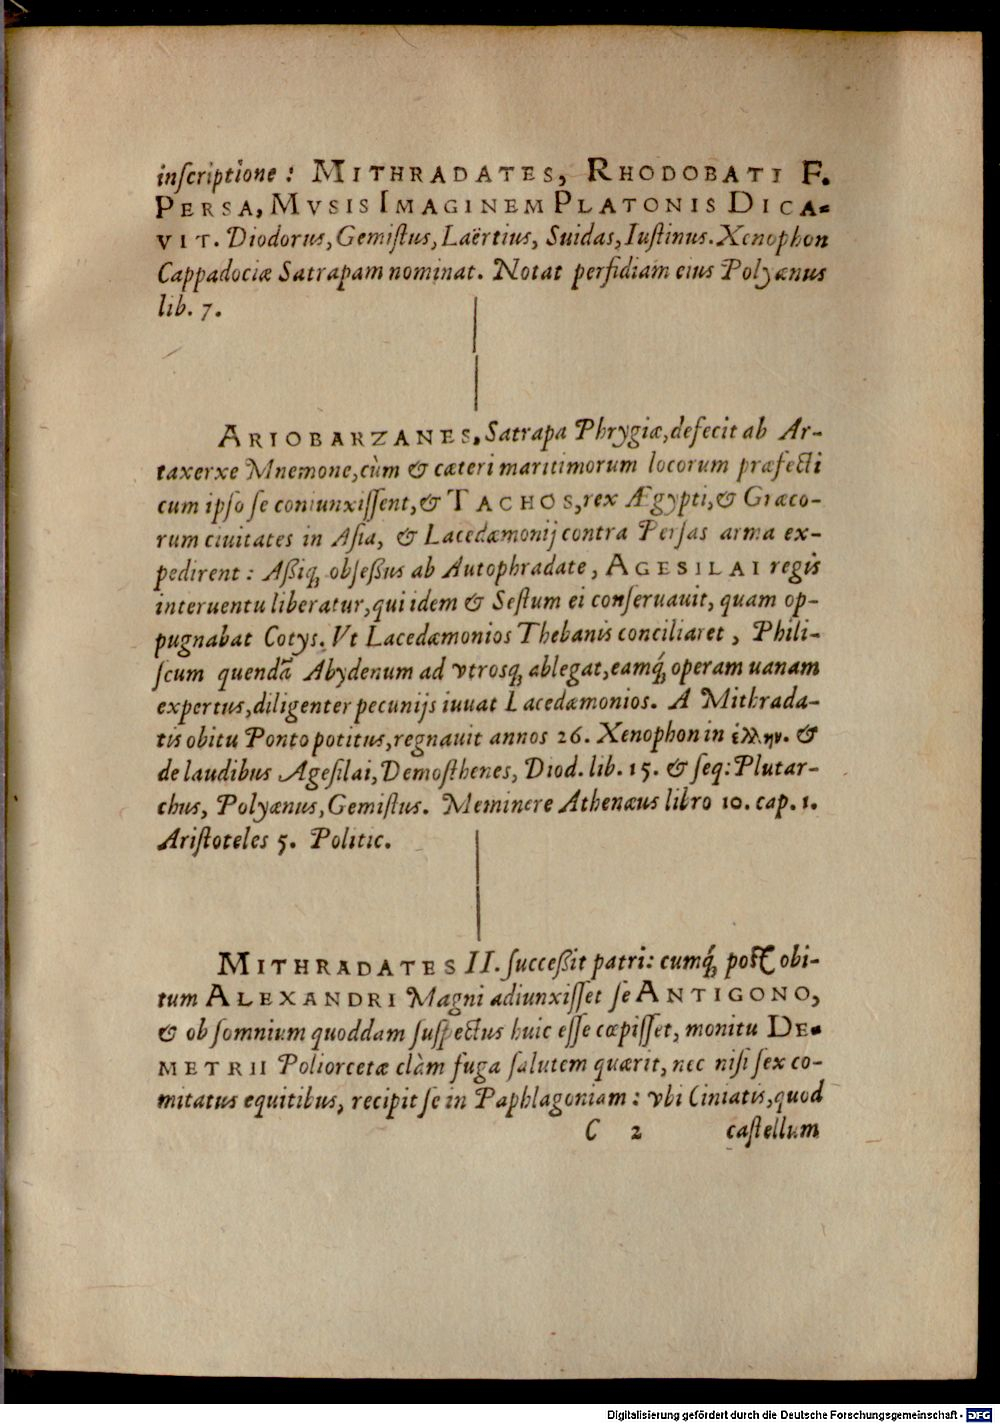 inſcriptione : MITHRADATES, RHODOBATI F.
PERSA, MVSIS IMAGINEM PLATONIS DICA-
VIT. Diodorus, Gemiſtus, Laërtius, Suidas, Iuſtinus. Xenophon
Cappadociæ Satrapam nominat. Notat perfidiam eius Polyænus
lib. 7.
ARIOBARZANES, Satrapa Phrygiæ, defecit ab Ar-
taxerxe Mnemone, cùm & cæteri maritimorum locorum præfecti
cum ipſo ſe coniunxiſſent, & TACHOS, rex Ægypti, & Græco-
rum ciuitates in Aſia, & Lacedæmonij contra Perſas arma ex-
pedirent : Aßiq́ obſeßus ab Autophradate, AGESILAI regis
interuentu liberatur, qui idem & Seſtum ei conſeruauit, quam op-
pugnabat Cotys. Vt Lacedæmonios Thebanis conciliaret, Phili-
ſcum quendã Abydenum ad vtrosq́ ablegat, eamq́ operam uanam
expertus, diligenter pecunijs iuuat Lacedæmonios. A Mithrada-
tis obitu Ponto potitus, regnauit annos 26. Xenophon in ἑλλην. &
de laudibus Ageſilai, Demoſthenes, Diod. lib. 15. & ſeq: Plutar-
chus, Polyænus, Gemiſtus. Meminere Athenæus libro 10. cap. 1.
Ariſtoteles 5. Politic.
MITHRADATES II. ſucceßit patri: cumq́ post obi-
tum ALEXANDRI Magni adiunxiſſet ſe ANTIGONO,
& ob ſomnium quoddam ſuſpectus huic eſſe cœpiſſet, monitu DE-
METRII Poliorcetæ clàm fuga ſalutem quærit, nec niſi ſex co-
mitatus equitibus, recipit ſe in Paphlagoniam : vbi Ciniatis, quod
C 2 caſtellum
Digitalisierung gefördert durch die Deutsche Forschungsgemeinschaft - DFG